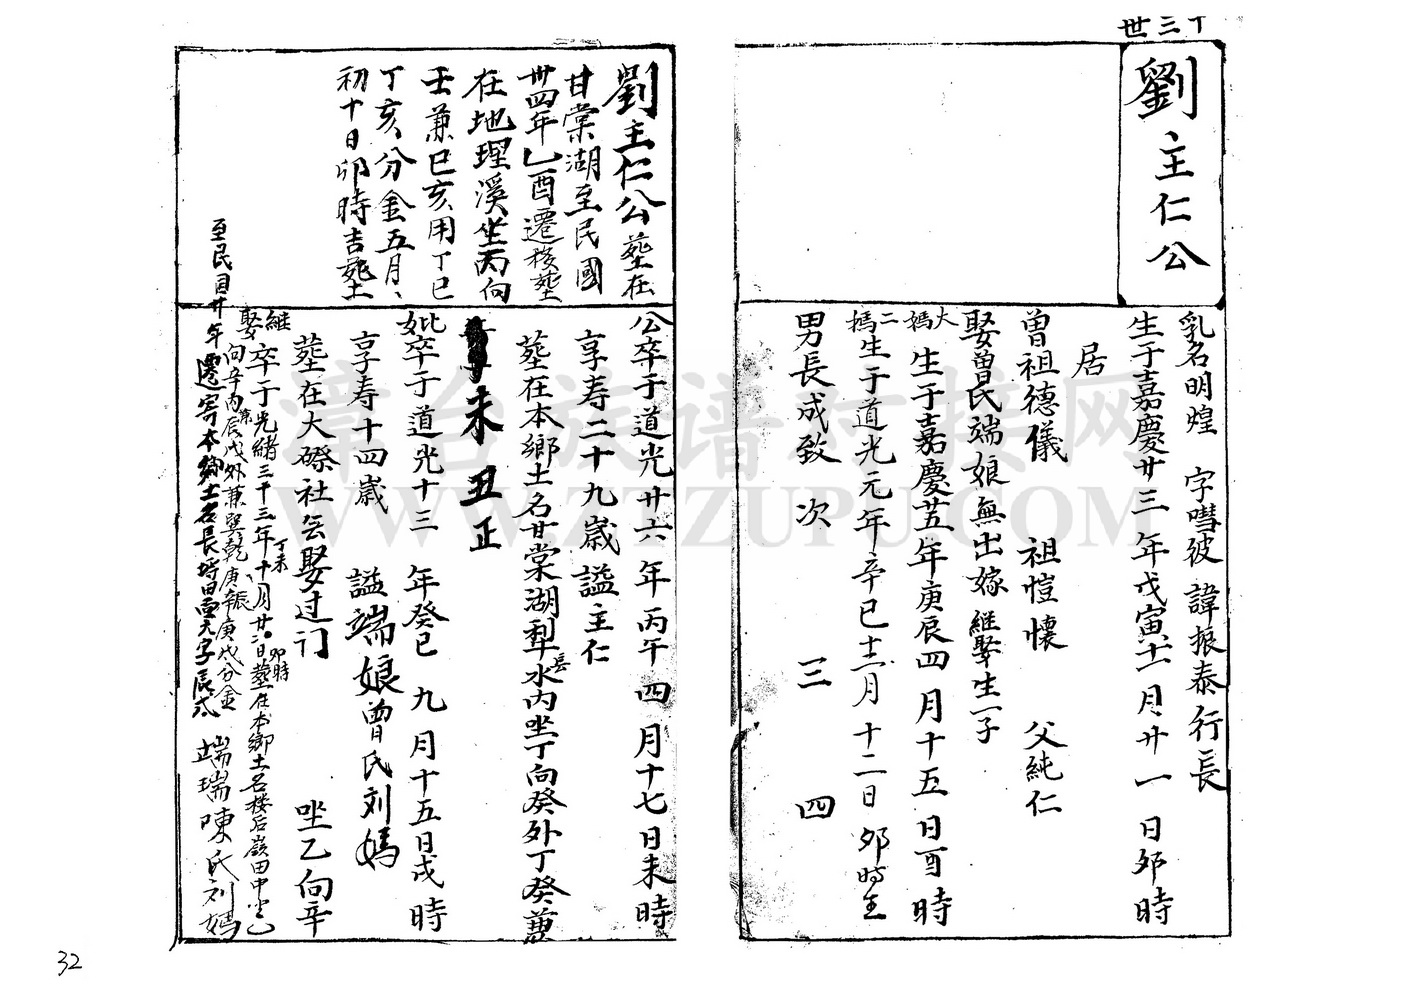 十三世
劉主仁公
乳名明煌 字嘒彼 諱振泰行長
生于嘉慶廿三年戊寅十一月廿一日夘時
居
曾祖德儀 祖愷懷 父純仁
娶曾氏端娘無出嫁 繼娶生一子
大媽生于嘉慶廿五年庚辰四月十五日酉時
二媽生于道光元年辛巳十二月十二日夘時生
男長成致 次 三 四
劉主仁公塟在
甘棠湖至民國
卅四年乙酉遷移塟
在地理溪坐丙向
壬兼巳亥用丁巳
丁亥分金五月
初十日卯時吉塟
公卒于道光廿六年丙午四月十七日未時
享寿二十九歲謚主仁
塟在本鄉土名甘棠湖犁水内坐丁向癸外丁癸兼
未丑正
妣卒于道光十三年癸巳九月十五日戌時
享寿十四歲 謚端娘曾氏刘媽
塟在大磜社 娶过门 坐乙向辛
繼娶卒于光緒三十三年丁未十月廿六日卯時塟在本鄉土名楼后嶺田中坐乙
向辛内兼辰戌外兼巽乾庚辰庚戌分金
至民国廿年遷寄本鄉土名長塆田面大字辰穴 端瑞陳氏刘媽
32
漳台族谱对接网
WWW.ZTZUPU.COM